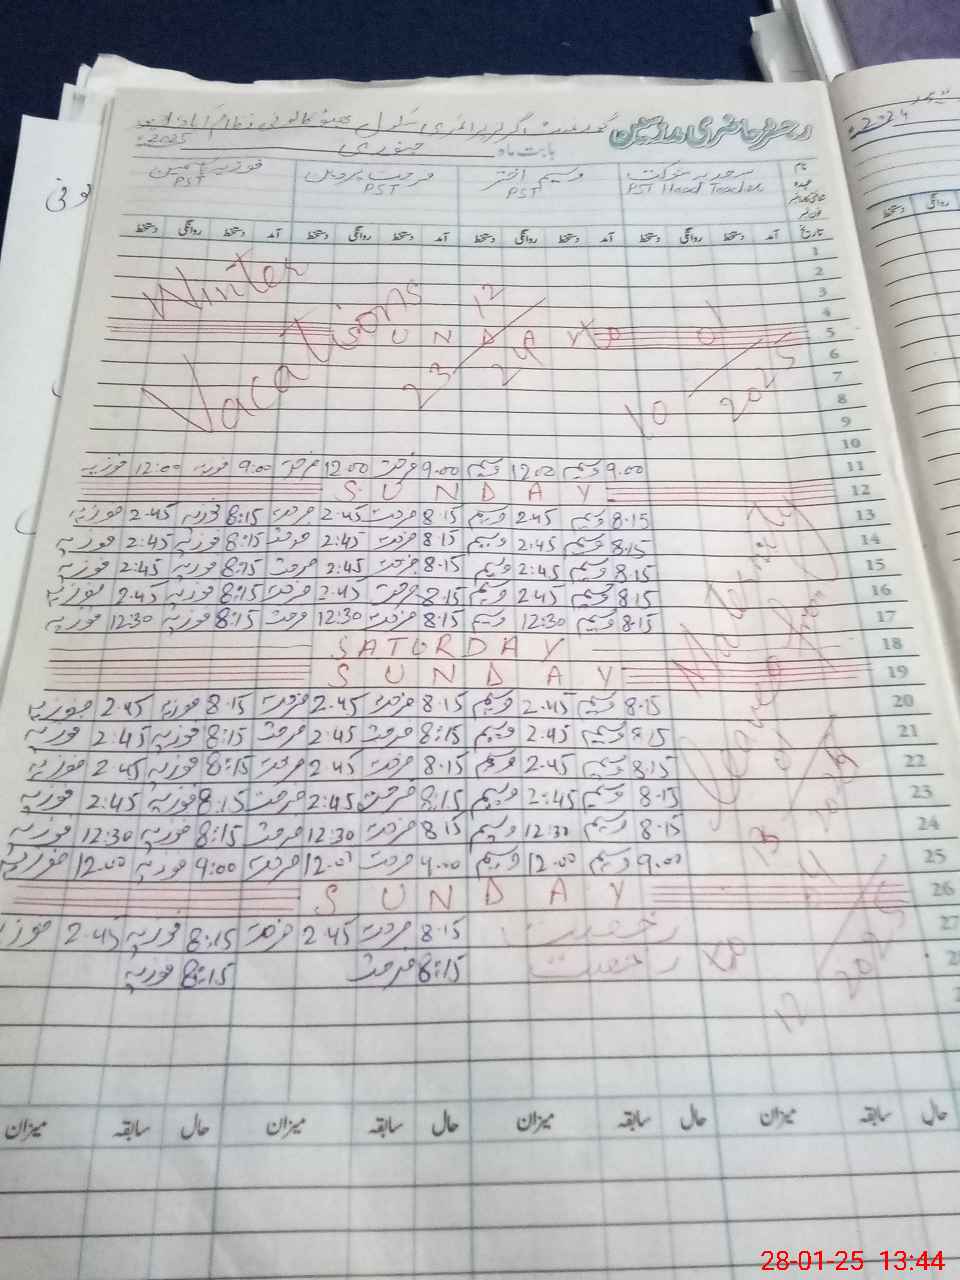 رجسٹر حاضری مدرسین گورنمنٹ گرلز پرائمری سکول
بابت ماہ جنوری 2025
نام سعدیہ شوکت وسیم اختر فرحت پروین فوزیہ
عہدہ PST Head Teacher PST PST PST
تاریخ آمد دستخط روانگی دستخط آمد دستخط روانگی دستخط آمد دستخط روانگی دستخط آمد دستخط روانگی دستخط
1
2
3
4
5 SUNDAY
6
7
8
9
10
Winter
Vacations
23/12
24 To 10/01
2025
11 9.00 وسیم 12.00 وسیم 9.00 فرحت 12.00 فرحت 9:00 فوزیہ 12:00 فوزیہ
12 SUNDAY
13 8.15 وسیم 2.45 وسیم 8.15 فرحت 2.45 فرحت 8:15 فوزیہ 2.45 فوزیہ
14 8.15 وسیم 2.45 وسیم 8.15 فرحت 2:45 فرحت 8:15 فوزیہ 2:45 فوزیہ
15 8.15 وسیم 2:45 وسیم 8.15 فرحت 2:45 فرحت 8:15 فوزیہ 2:45 فوزیہ
16 8.15 وسیم 2.45 وسیم 8.15 فرحت 2.45 فرحت 8:15 فوزیہ 2.45 فوزیہ
17 8.15 وسیم 12:30 وسیم 8.15 فرحت 12:30 فرحت 8:15 فوزیہ 12:30 فوزیہ
18 SATURDAY
19 SUNDAY
20 8.15 وسیم 2.45 وسیم 8.15 فرحت 2.45 فرحت 8.15 فوزیہ 2.45 فوزیہ
21 8.15 وسیم 2.45 وسیم 8:15 فرحت 2.45 فرحت 8:15 فوزیہ 2:45 فوزیہ
22 8.15 وسیم 2.45 وسیم 8.15 فرحت 2.45 فرحت 8:15 فوزیہ 2.45 فوزیہ
23 8.15 وسیم 2:45 وسیم 8:15 فرحت 2:45 فرحت 8:15 فوزیہ 2:45 فوزیہ
24 8.15 وسیم 12:30 وسیم 8.15 فرحت 12:30 فرحت 8:15 فوزیہ 12:30 فوزیہ
25 9.00 وسیم 12.00 وسیم 9.00 فرحت 12.00 فرحت 9:00 فوزیہ 12.00 فوزیہ
26 SUNDAY
27 رخصت 8.15 فرحت 2.45 فرحت 8:15 فوزیہ 2.45 فوزیہ
28 رخصت 8:15 فرحت 8:15 فوزیہ
Maternity
Leave from
حال سابقہ میزان حال سابقہ میزان حال سابقہ میزان حال سابقہ میزان
2024
روانگی دستخط
28-01-25 13:44